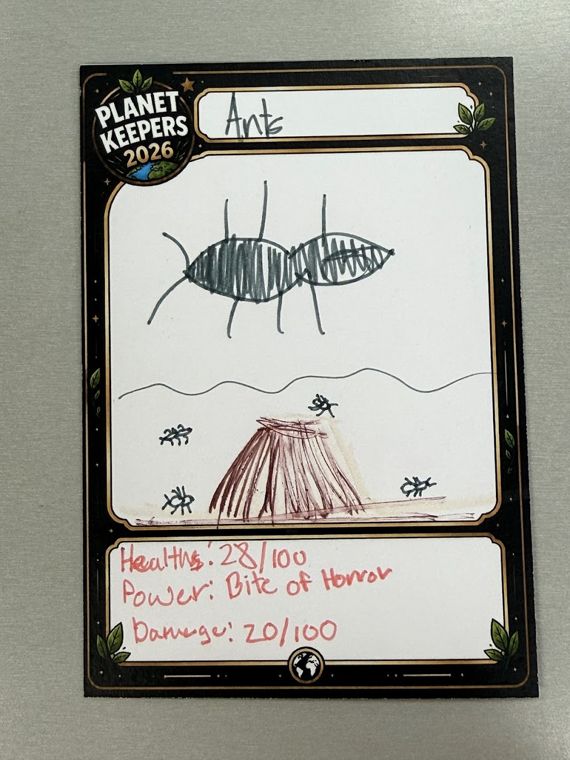 PLANET
KEEPERS
2026
Ants
Healths: 28/100
Power: Bite of Horror
Damage: 20/100